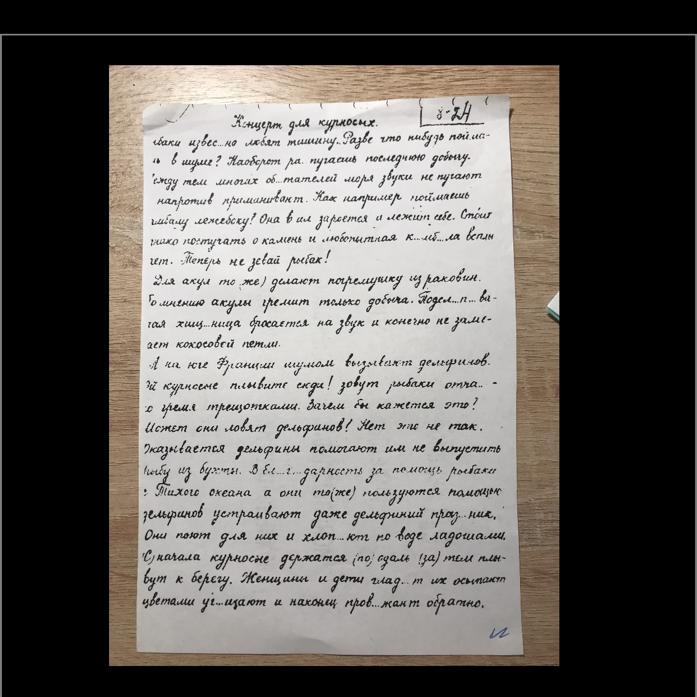 Концерт для курносых.
8-24
рыбаки извес...но любят тишину. Разве что нибудь пойма-
в шуме? Наоборот ра. пугаешь последнюю добычу.
ежду тем многих об...тателей моря звуки не пугают
напротив приманивают. Как например поймаешь
камбалу лежебоку? Она в ил зароется и лежит себе. Стоит
постучать о камень и любопытная к...мб...ла всплы
вет. Теперь не зевай рыбак!
Для акул то(же) делают погремушку из раковин.
По мнению акулы гремит только добыча. Подел...п...ва-
хищ...ница бросается на звук и конечно не заме-
чает кокосовой петли.
А на юге Франции шумом вызывают дельфинов.
Эй курносые плывите сюда! зовут рыбаки отча.. -
о гремя трещотками. Зачем бы кажется это?
Может они ловят дельфинов? Нет это не так.
Оказывается дельфины помогают им не выпустить
рыбу из бухты. В бл...г...дарность за помощь рыбаки
с Тихого океана а они то(же) пользуются помощью
дельфинов устраивают даже дельфиний праз...ник.
Они поют для них и хлоп...ют по воде ладошами.
(С)начала курносые держатся (по)одаль (за)тем плы-
вут к берегу. Женщины и дети глад...т их осыпают
цветами уг...щают и наконец пров...жают обратно.